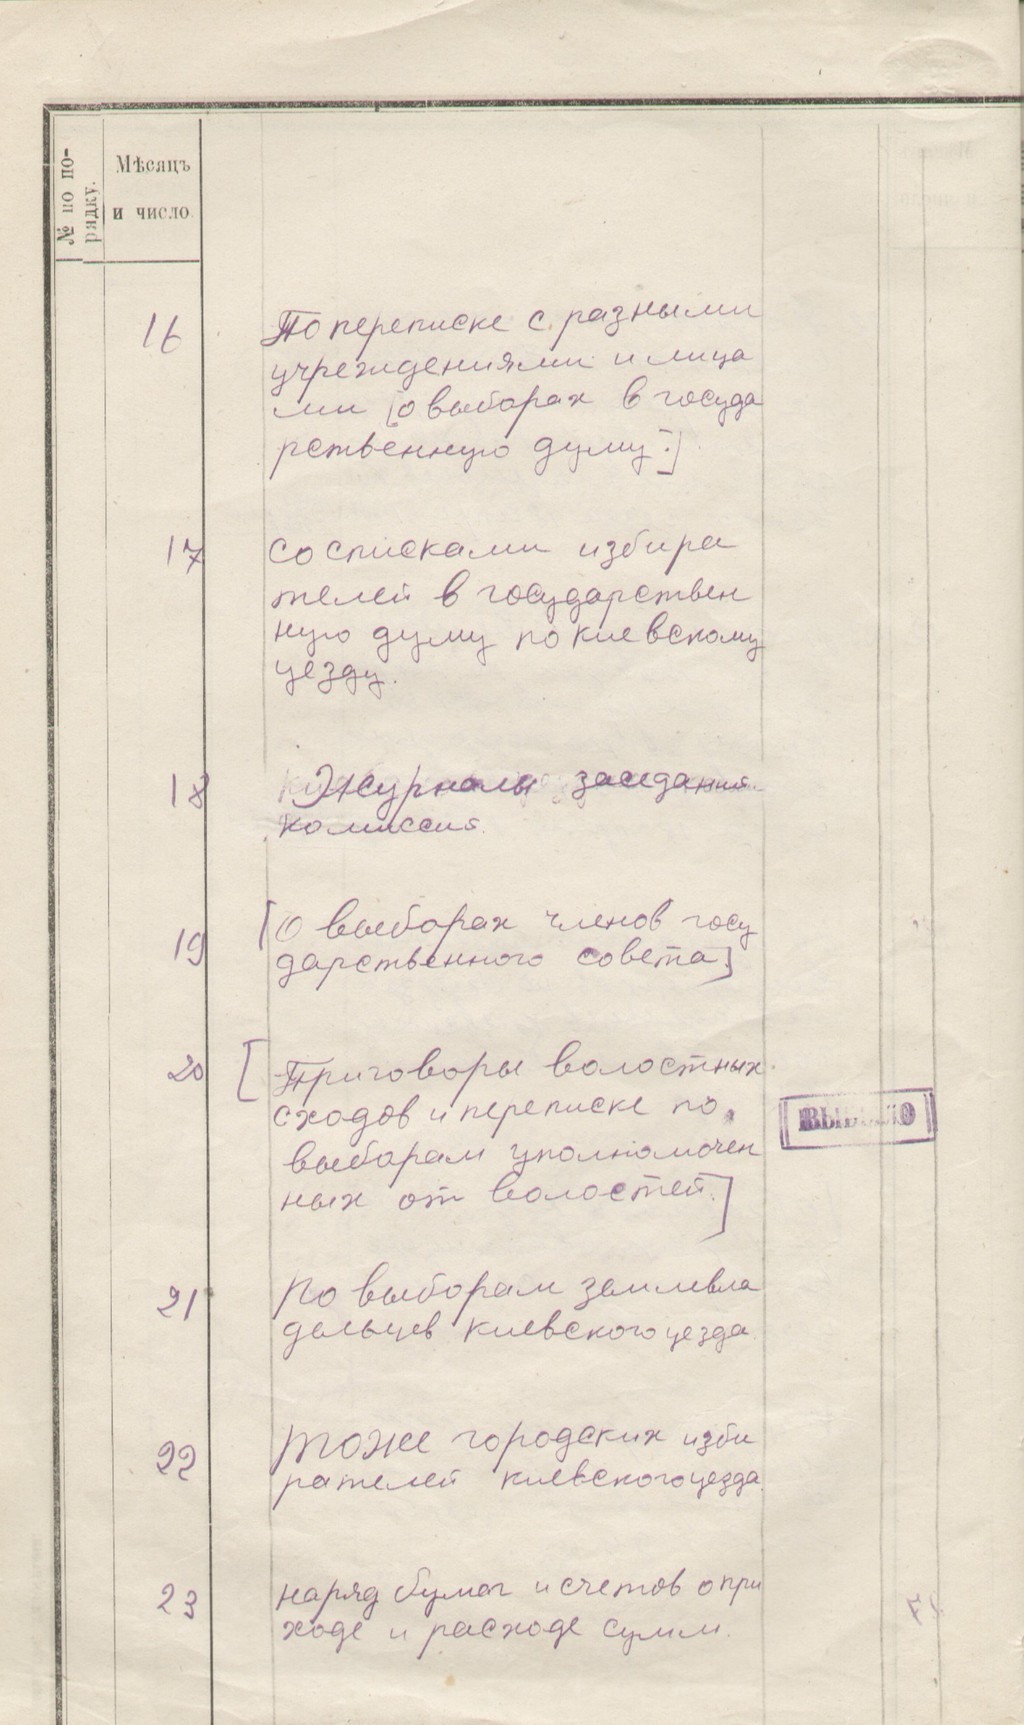 № по по-
рядку.
Мѣсяцъ
и число
16
По переписке с разными
учреждениями и лица
ми [о выборах в госуда
рственную думу:]
17
со списками избира
телей в государствен
ную думу по киевскому
уезду.
18
Журналы заседаний
комиссий.
19
[О выборах членов госу
дарственного совета]
20
[Приговоры волостных
сходов и переписке по
выборам уполномочен
ных от волостей.]
21
По выборам землевла
дельцев киевского уезда
22
тоже городских изби
рателей киевского уезда
23
наряд бумаг и счетов о при
ходе и расходе сумм.